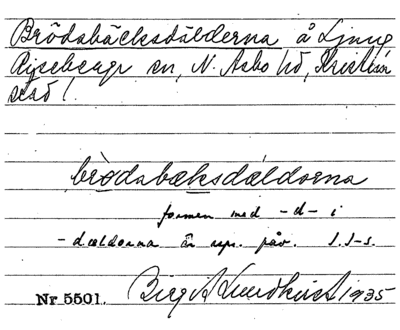 Brödabäcksdälderna å Ljung
Riseberga sn, N. Åsbo hd, Kristian
stad l.
brödabæksdældorna
formen med -d- i
-dældorna är upr. påv. I.I-s.
Nr 5501. Birgit Lundkvist 1935